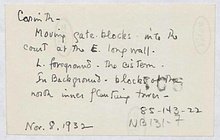 Corinth-
Moving gate-blocks into the
court at the E. long wall.
L. foreground - the cistern.
In Background - blocks of the
north inner flanking tower -
85-143-22
Nov. 8, 1932
NB131-7